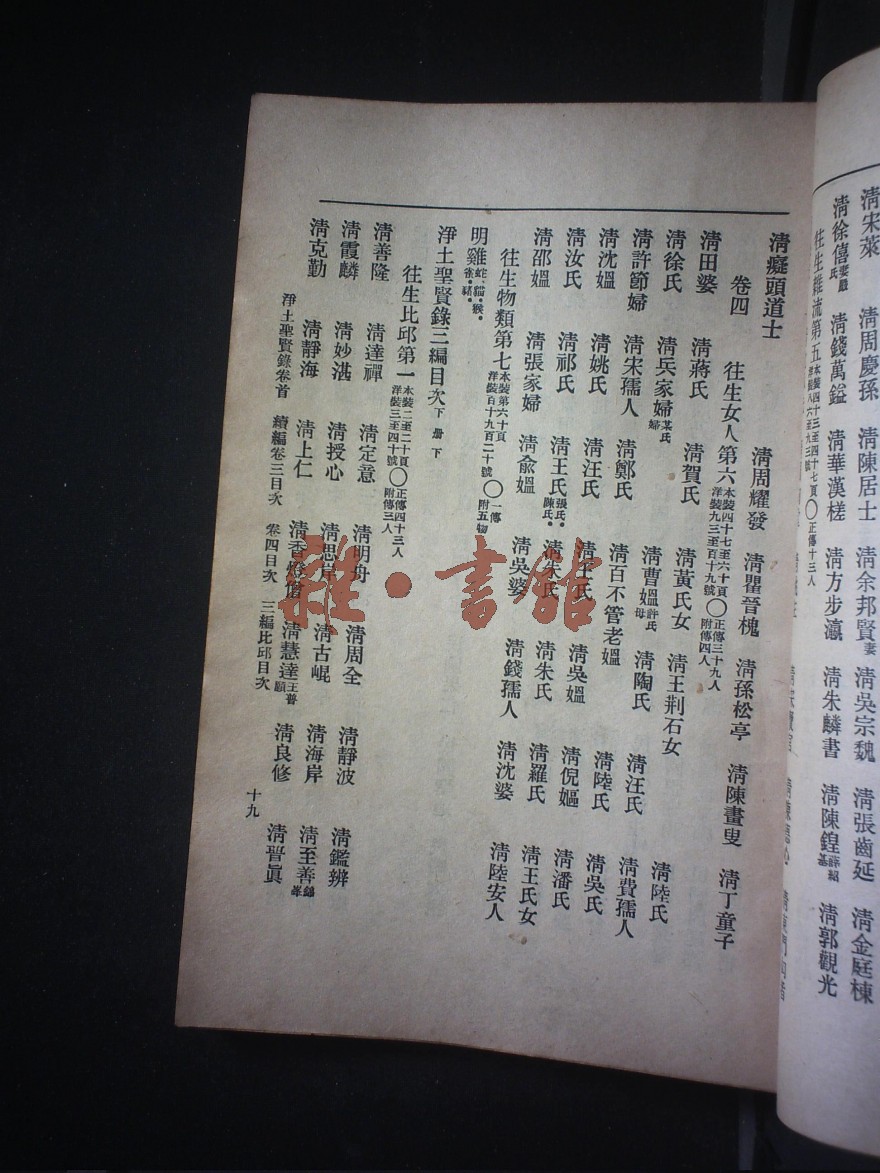 清宋萊　清周慶孫　清陳居士　清余邦賢妻　清吳宗魏　清張齒延　清金庭棟
清徐僖妻嚴氏　清錢萬鎰　清華漢槎　清方步瀛　清朱麟書　清陳鍠薛紹基　清郭觀光
往生雜流第五　本裝四十三至四十七頁　洋裝八六至九三號　○正傳十三人
清癡頭道士　清周耀發　清瞿晉槐　清孫松亭　清陳畫叟　清丁童子
卷四　往生女人第六　本裝四十七至六十頁　洋裝九三至百十九號　○正傳三十九人　附傳四人
清田婆　清蔣氏　清賀氏　清黃氏女　清王荆石女　清陸氏
清徐氏　清兵家婦某氏婦　清曹媼許氏母　清陶氏　清汪氏　清費孺人
清許節婦　清宋孺人　清鄭氏　清百不管老媼　清陸氏　清吳氏
清沈媼　清姚氏　清汪氏　清王氏　清吳媼　清倪嫗　清潘氏
清汝氏　清祁氏　清王氏張氏•陳氏•　清朱氏　清朱氏　清羅氏　清王氏女
清邵媼　清張家婦　清俞媼　清吳婆　清錢孺人　清沈婆　清陸安人
往生物類第七　本裝第六十頁　洋裝百十九百二十號　○一傳　附五物
明雞蛇•貓•猴•雀•豬•
淨土聖賢錄三編目次　下冊下
往生比邱第一　本裝二至二十頁　洋裝三至四十號　○正傳四十三人　附傳三人
清善隆　清達禪　清定意　清明舟　清周全　清靜波　清鑑辨
清霞麟　清妙湛　清授心　清思岸　清古崐　清海岸　清至善錦峯
清克勤　清靜海　清上仁　清香燈僧　清慧達王普願　清良修　清晉眞
淨土聖賢錄卷首　續編卷三目次　卷四目次　三編比邱目次　十九
雜•書館